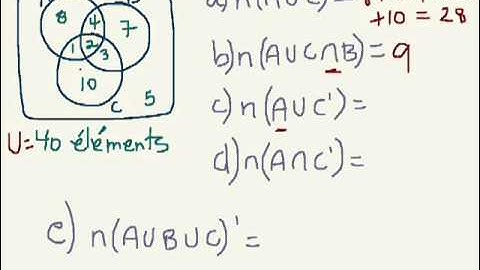 a) n(A∪C) =
+10 = 28
b) n(A∪C∩B) = 9
c) n(A∪C') =
d) n(A∩C') =
e) n(A∪B∪C)' =
8 4 7
1 2 3
10
C 5
U=40 éléments